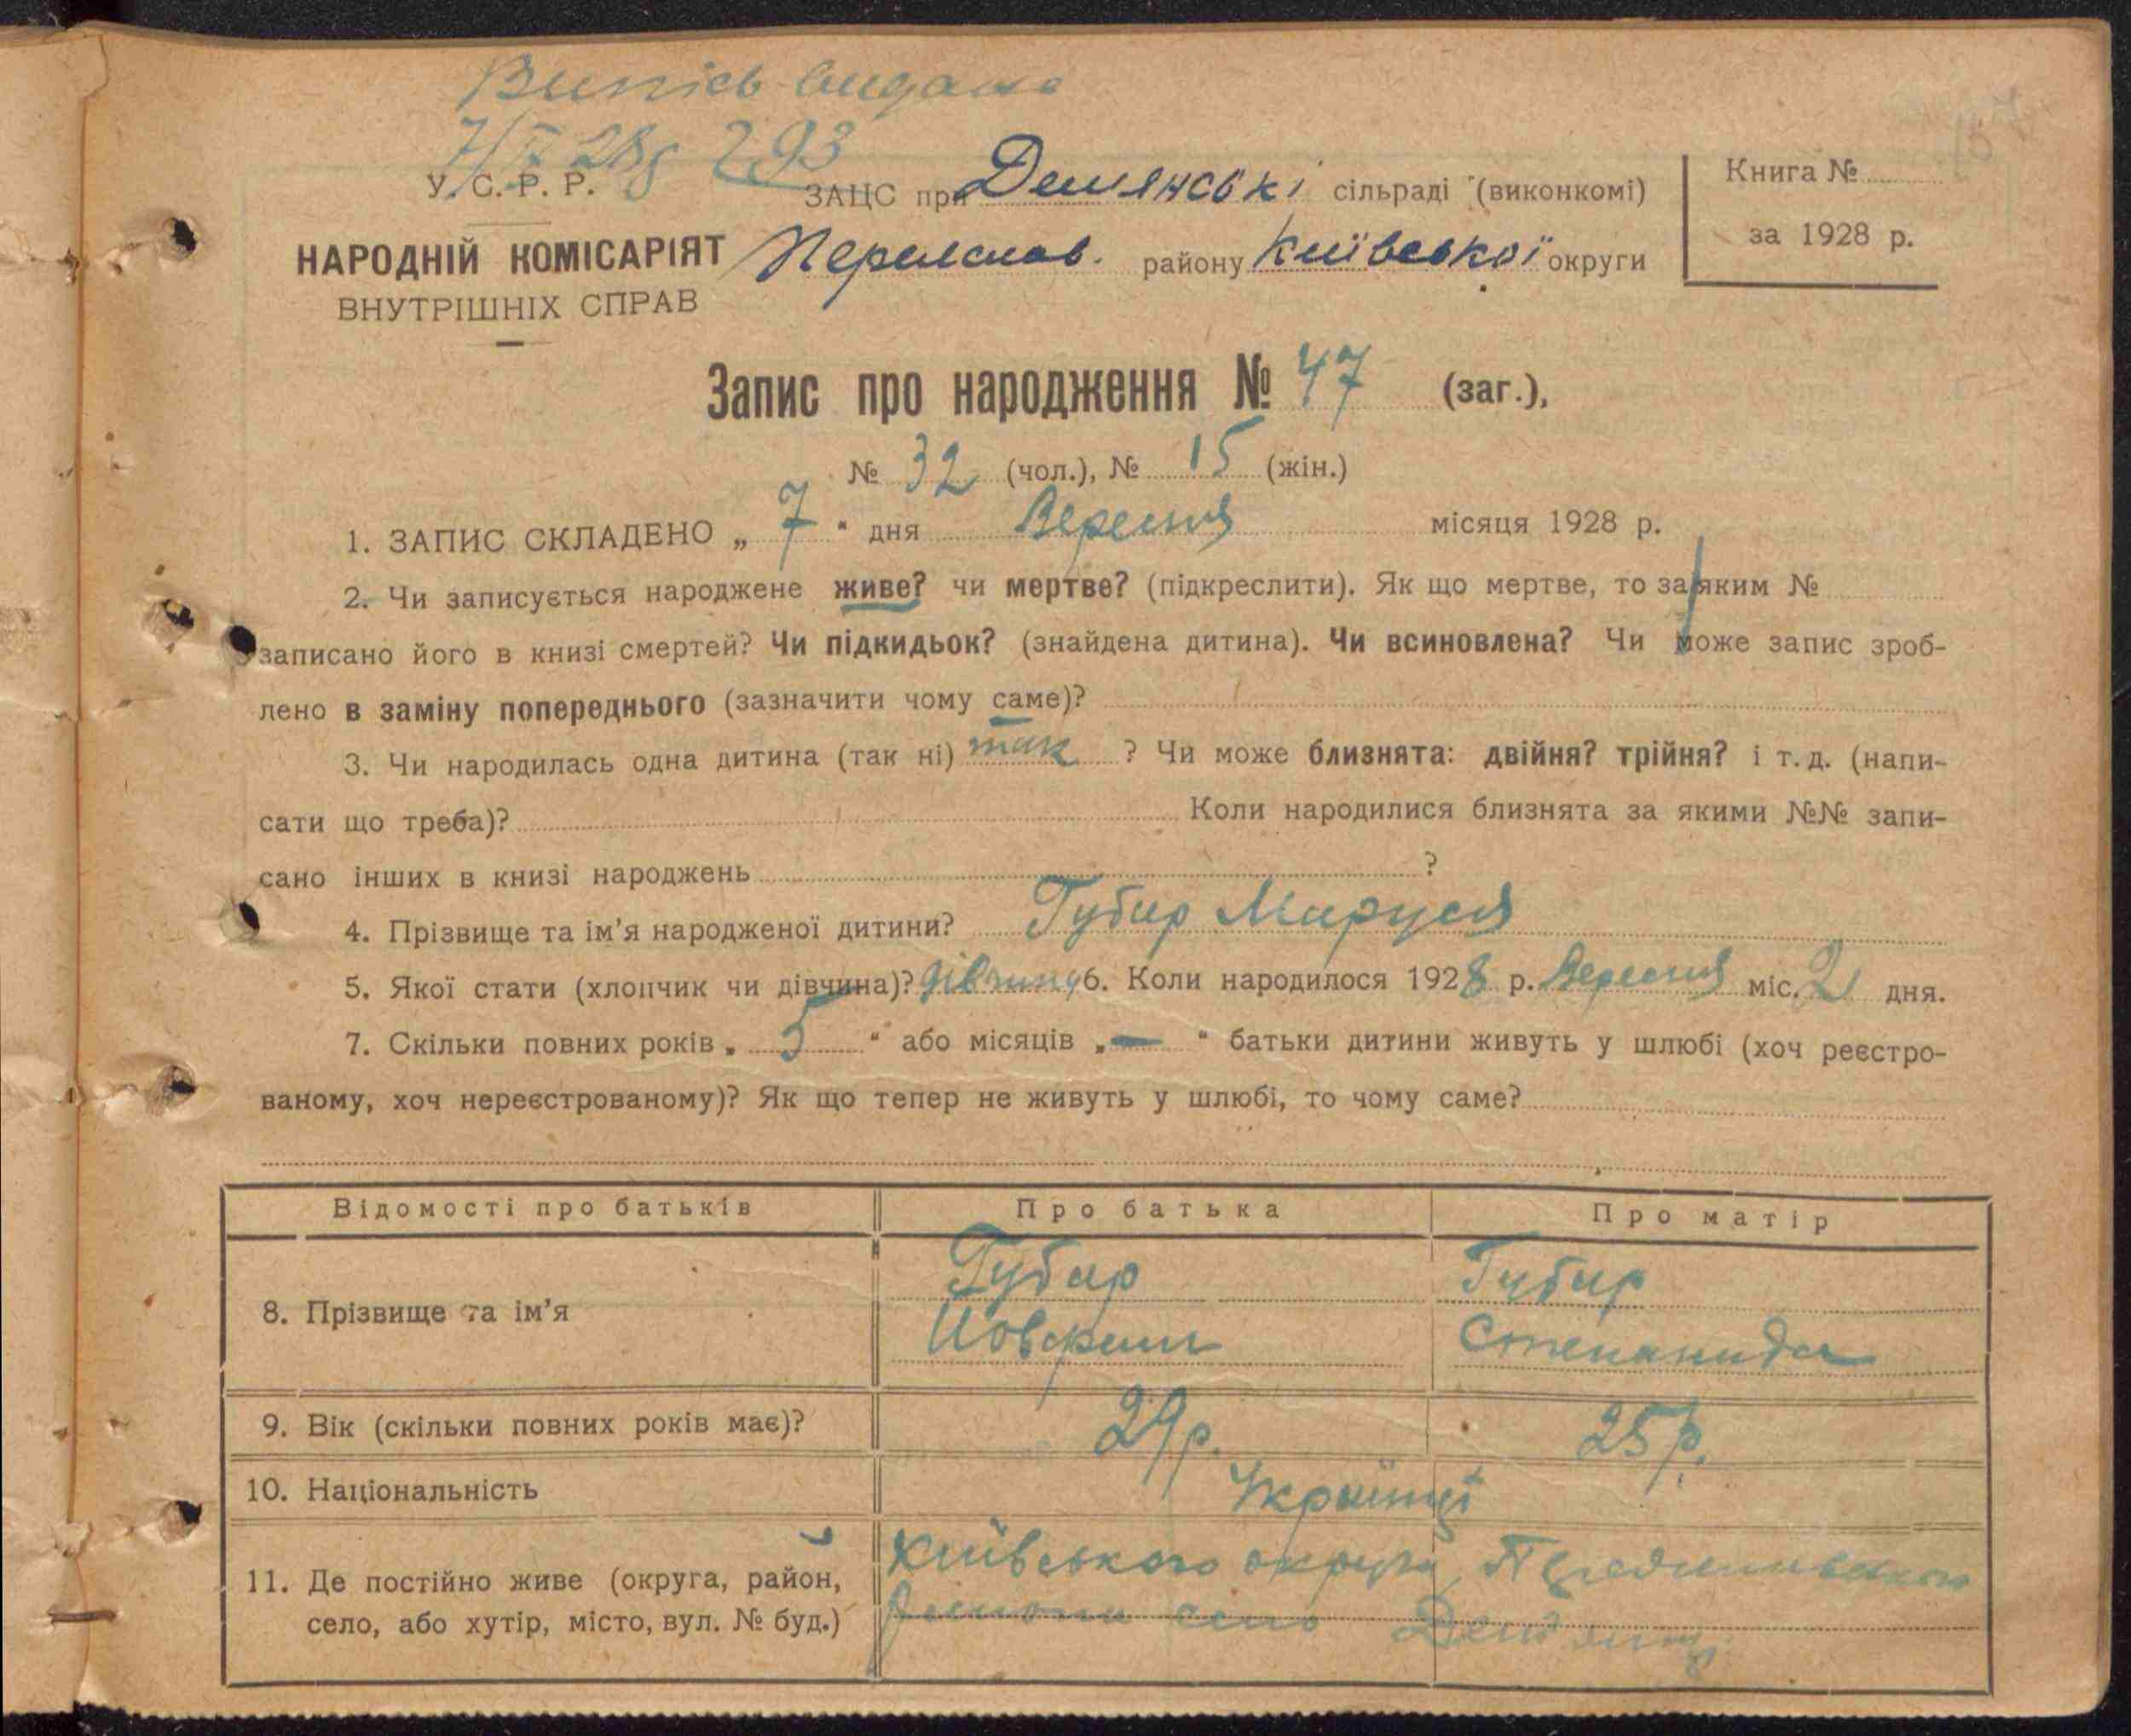 Випісь видана
293
У. С. Р. Р.
ЗАЦС при Демянські сільраді (виконкомі)
Книга №
за 1928 р.
НАРОДНІЙ КОМІСАРІЯТ
ВНУТРІШНІХ СПРАВ
Переяслав. району Київської округи
Запис про народження № 47 (заг.),
№ 32 (чол.), № 15 (жін.)
1. ЗАПИС СКЛАДЕНО „ 7 “ дня Вересня місяця 1928 р.
2. Чи записується народжене живе? чи мертве? (підкреслити). Як що мертве, то за яким №
записано його в книзі смертей? Чи підкидьок? (знайдена дитина). Чи всиновлена? Чи може запис зроб-
лено в заміну попереднього (зазначити чому саме)?
3. Чи народилась одна дитина (так ні) так ? Чи може близнята: двійня? трійня? і т. д. (напи-
сати що треба)? Коли народилися близнята за якими №№ запи-
сано інших в книзі народжень ?
4. Прізвище та ім’я народженої дитини? Губар Маруся
5. Якої стати (хлопчик чи дівчина)? дівчина 6. Коли народилося 1928 р. Вересня міс. 2 дня.
7. Скільки повних років „ 5 “ або місяців „ — “ батьки дитини живуть у шлюбі (хоч реєстро-
ваному, хоч нереєстрованому)? Як що тепер не живуть у шлюбі, то чому саме?
Відомості про батьків Про батька Про матір
8. Прізвище та ім’я Губар Губар
Степанида
9. Вік (скільки повних років має)? 29 р. 25 р.
10. Національність Українці
11. Де постійно живе (округа, район, Київського округа
село, або хутір, місто, вул. № буд.) село